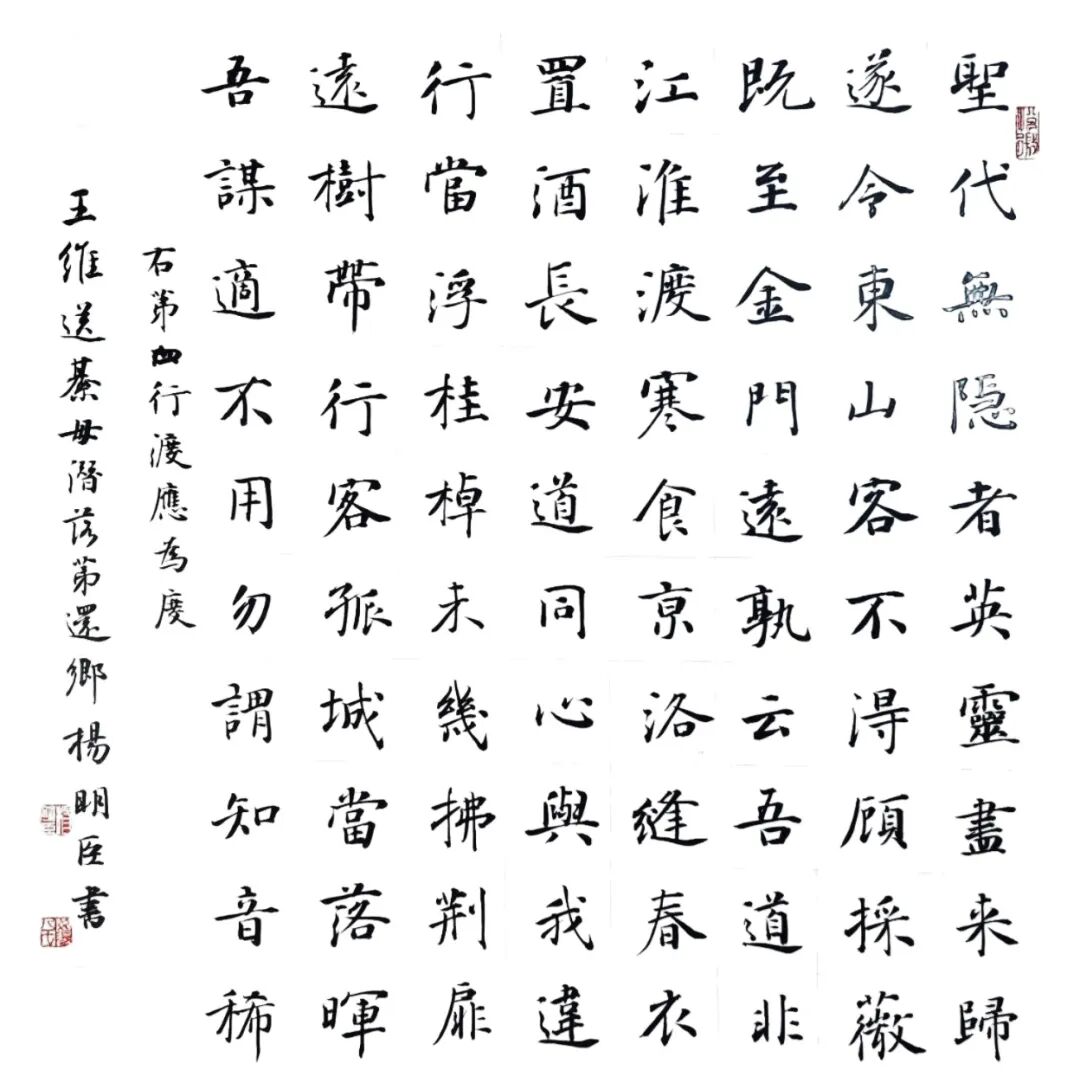 聖代無隐者英靈盡来歸
遂令東山客不得顧採薇
既至金門遠孰云吾道非
江淮渡寒食京洛縫春衣
置酒長安道同心與我違
行當浮桂棹未幾拂荆扉
遠樹帶行客孤城當落暉
吾謀適不用勿謂知音稀
右第四行渡應為度
王維送綦毋潛落第還鄉楊明臣書